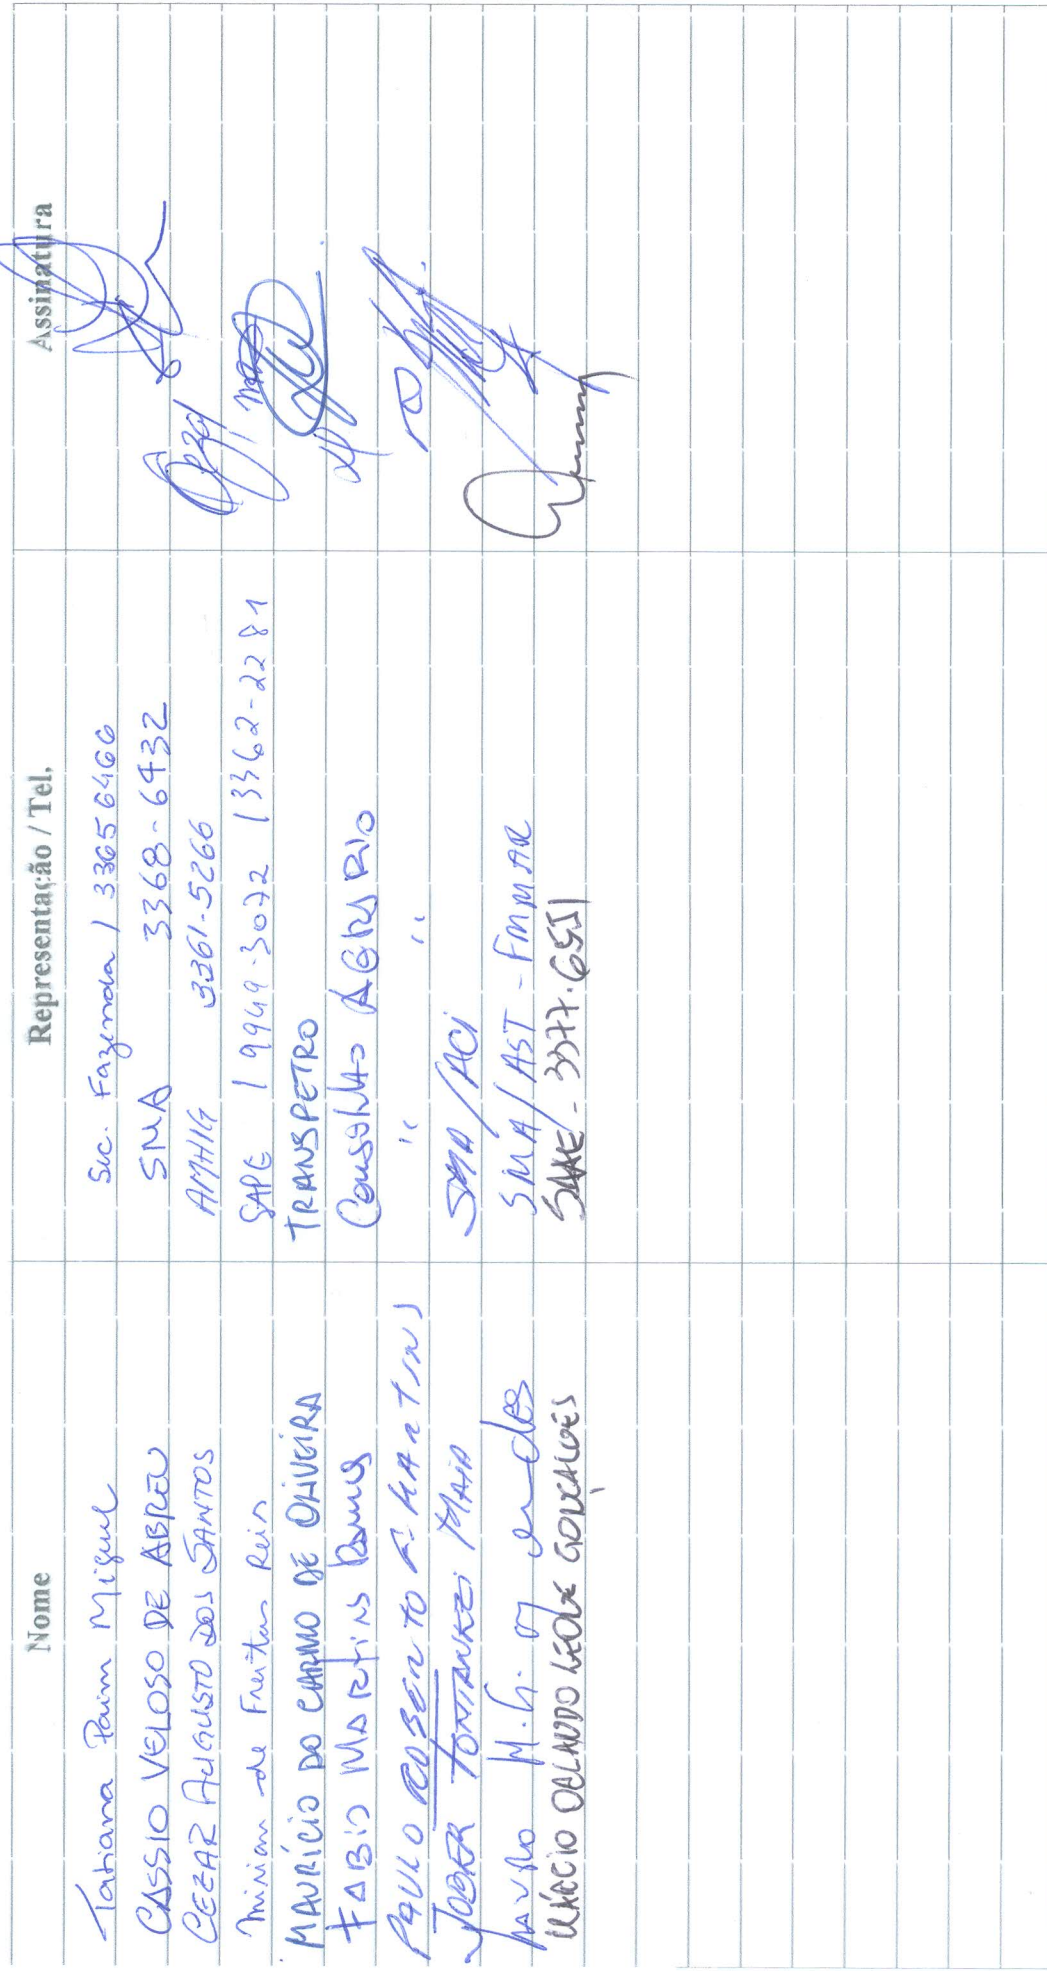 Nome Representação / Tel. Assinatura
Tatiana Paim Miguel Sec. Fazenda / 33656466
CASSIO VELOSO DE ABREU SMA 3368-6432
CEZAR AUGUSTO DOS SANTOS AMHIG 3361-5266
Miriam de Freitas Reis SAPE / 9949-3072 / 3362-2281
MAURÍCIO DO CARMO DE OLIVEIRA TRANSPETRO
FABIO MARTINS Ramos Conselho AGRARIO
PAULO ROBERTO F. MARTINS " "
JOBER MAIA SMA/ACI
SMA/AST - FMMAR
MÁRCIO ORLANDO LEONE GONÇALVES SAAE - 3377.6551